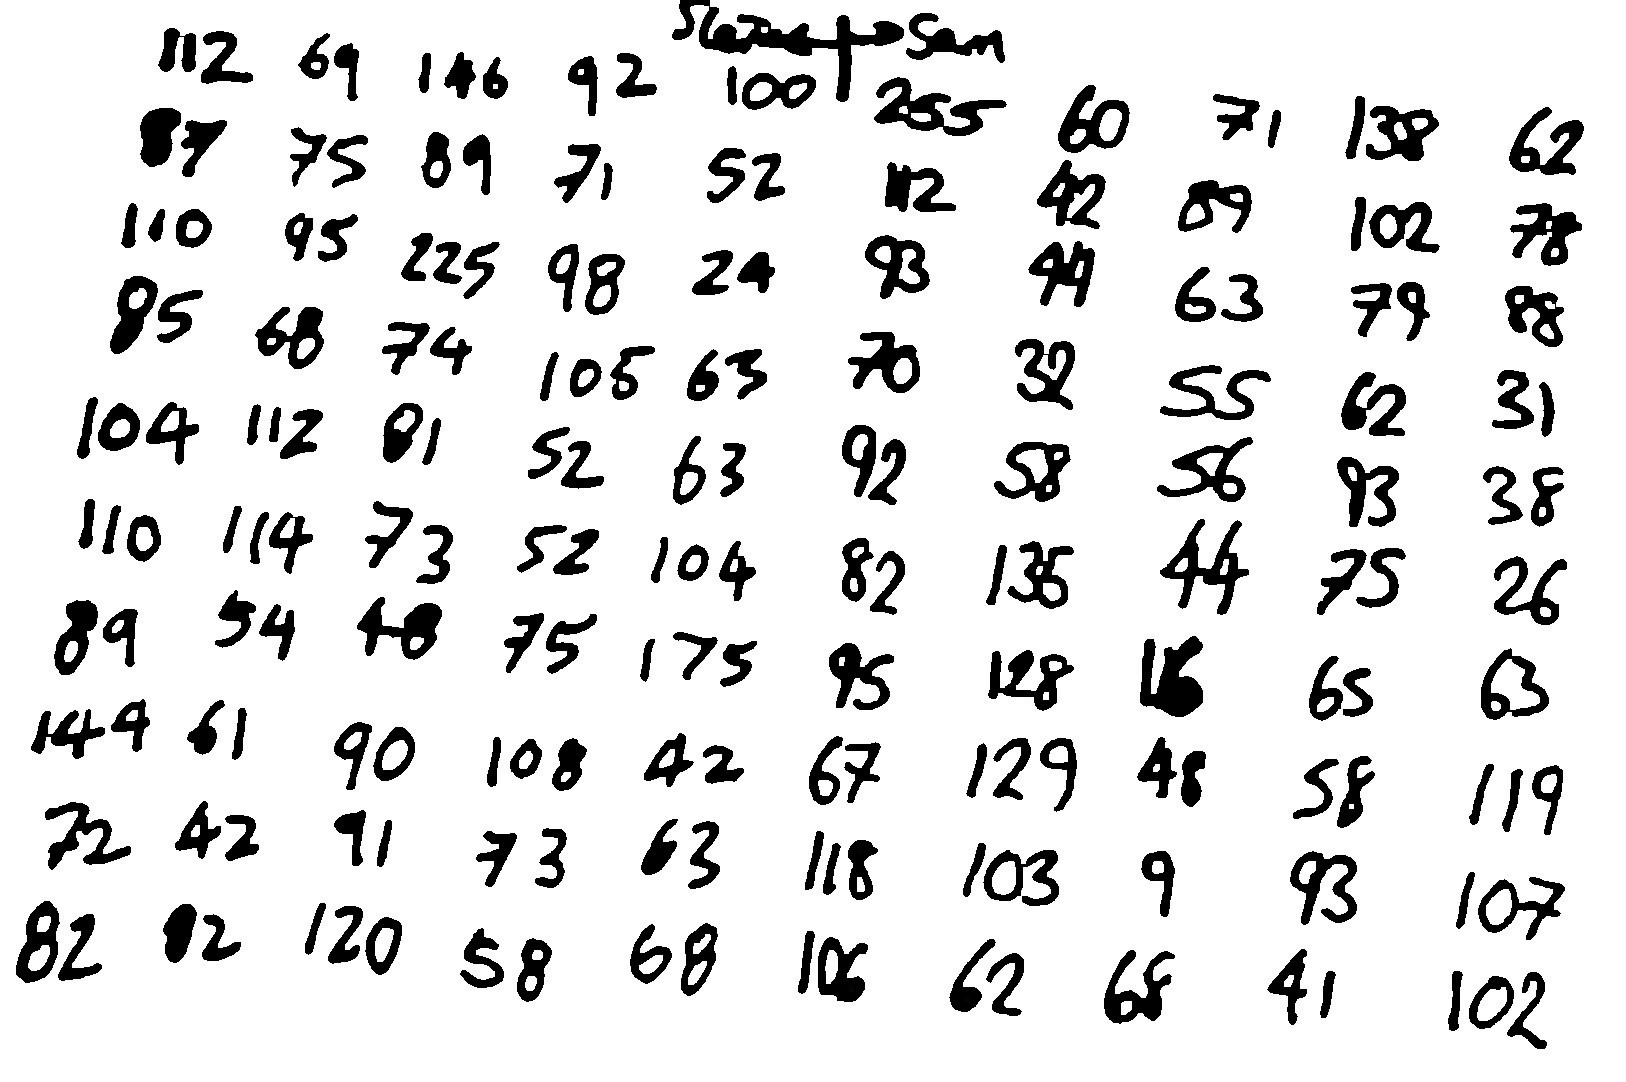 Sam
112 69 146 92 100 255 60 71 138 62
87 75 89 71 52 112 42 89 102 78
110 95 225 98 24 93 44 63 79 88
85 68 74 105 63 70 32 55 62 31
104 112 81 52 63 92 58 56 93 38
110 114 73 52 104 82 135 44 75 26
89 54 48 75 175 95 128 65 63
144 61 90 108 42 67 129 48 58 119
72 42 91 73 63 118 103 9 93 107
82 82 120 58 68 106 62 68 41 102